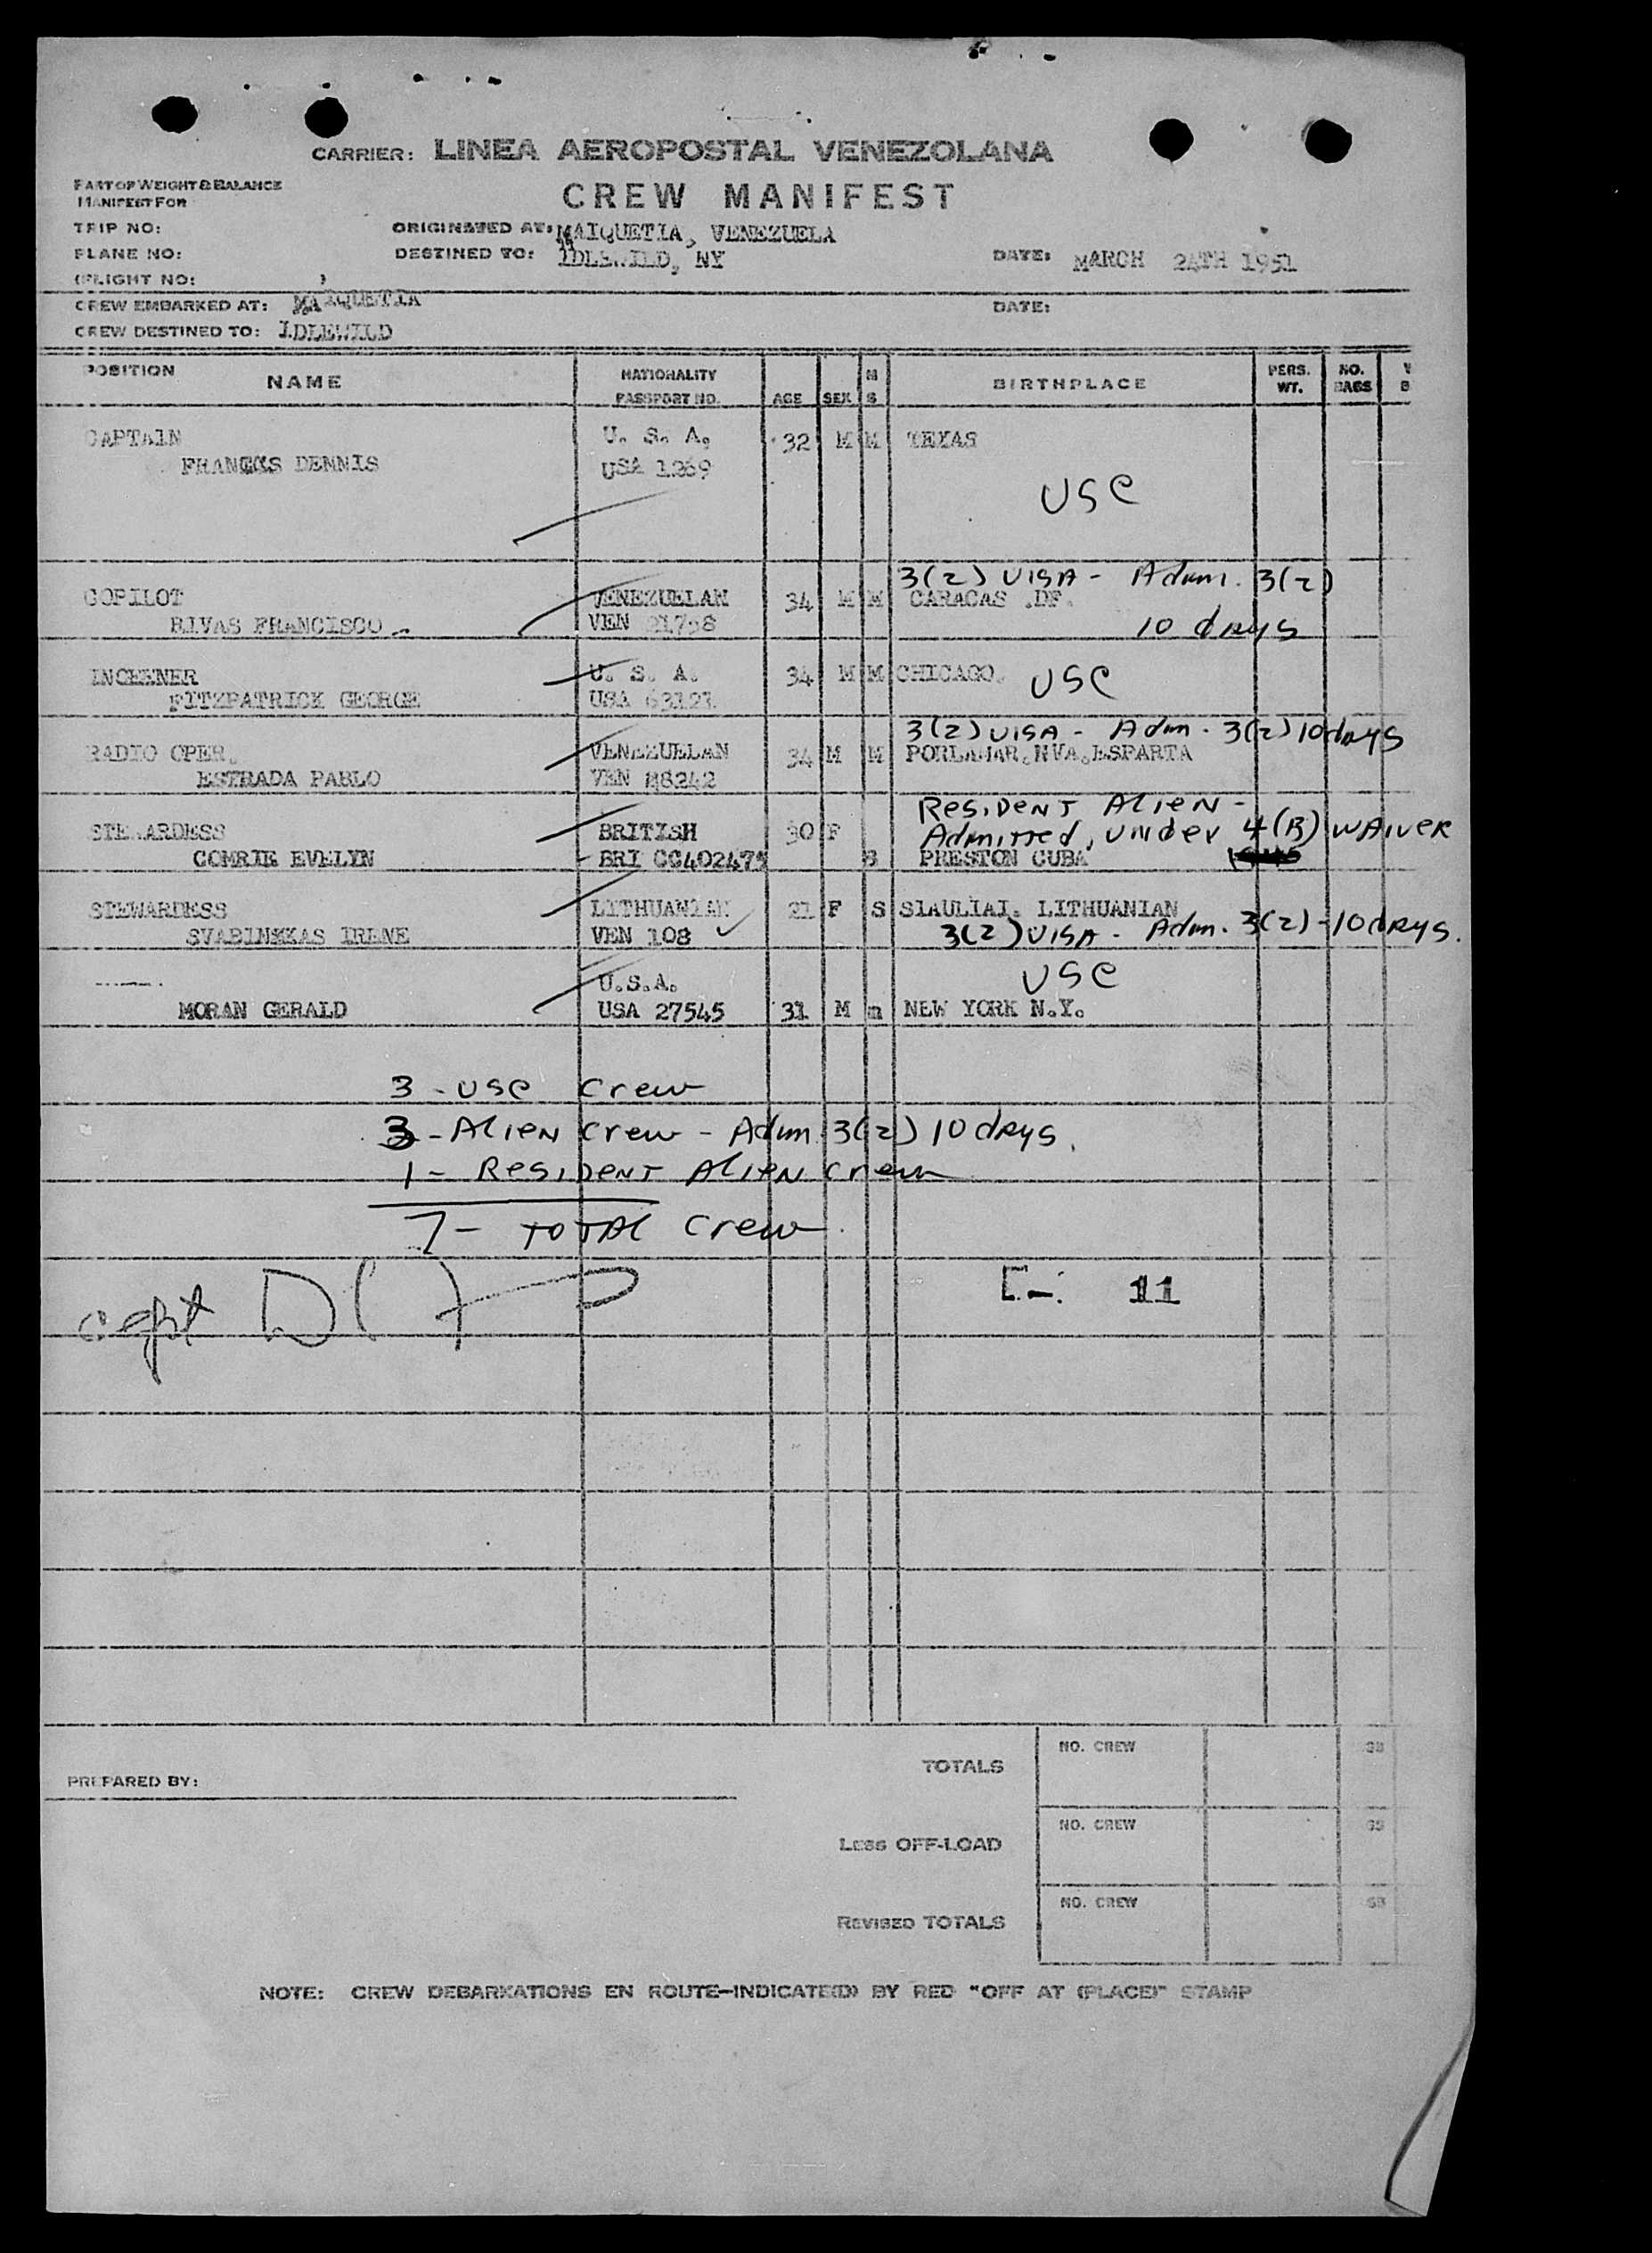 CARRIER: LINEA AEROPOSTAL VENEZOLANA
PART OF WEIGHT & BALANCE
MANIFEST FOR
CREW MANIFEST
TRIP NO: ORIGINATED AT: MAIQUETIA, VENEZUELA
PLANE NO: DESTINED TO: IDLEWILD, NY DATE: MARCH 24TH 1951
(FLIGHT NO: )
CREW EMBARKED AT: MAIQUETIA DATE:
CREW DESTINED TO: IDLEWILD
POSITION NAME NATIONALITY PASSPORT NO. AGE SEX M S BIRTHPLACE PERS. WT. NO. BAGS
CAPTAIN U. S. A. 32 M M TEXAS
DENNIS USA 1269
USC
3(2) VISA - Adm. 3(2)
COPILOT VENEZUELAN 34 M M CARACAS .DF.
RIVAS FRANCISCO VEN 10 days
U. S. A. 34 M M CHICAGO. USC
FITZPATRICK GEORGE USA
3(2) VISA - Adm. 3(2) 10 days
RADIO OPER. VENEZUELAN 34 M M PORLAMAR.NVA.ESPARTA
ESTRADA PABLO VEN 88242
Resident Alien -
STEWARDESS BRITISH 30 F Admitted, under 4(B) waiver
COMRIE EVELYN BRI S PRESTON CUBA
STEWARDESS LITHUANIAN 21 F S SIAULIAI. LITHUANIAN
IRENE VEN 108 3(2) VISA - Adm. 3(2) - 10 days.
------. U.S.A. USC
MORAN GERALD USA 27545 31 M m NEW YORK N.Y.
3 - USC Crew
3 - Alien Crew - Adm. 3(2) 10 days.
1 - Resident Alien Crew
7 - Total Crew.
capt
11
TOTALS NO. CREW
PREPARED BY:
LESS OFF-LOAD NO. CREW
REVISED TOTALS NO. CREW
NOTE: CREW DEBARKATIONS EN ROUTE—INDICATE(D) BY RED "OFF AT (PLACE)" STAMP